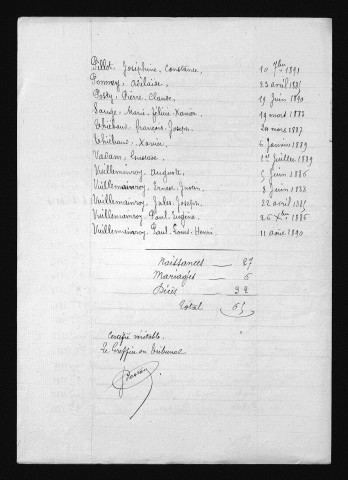 Billot, Joséphine, Constance, 10 7bre 1891
Pommey, Adélaïde, 23 avril 1885
Posty, Pierre, Claude, 19 juin 1890
Sauge, Marie, Féline, Xavier, 19 mars 1882
Thiébaud, François, Joseph, 20 mars 1887
Thiébaud, Xavier, 6 janvier 1889
Valam, 1er juillet 1889
Vuillemainroy, Auguste, 5 juin 1886
Vuillemainroy, Ernest, Justin, 8 juin 1888
Vuillemainroy, Jules, Joseph, 22 avril 1885
Vuillemainroy, Paul, Eugène, 26 Xbre 1886
Vuillemainroy, Paul, Louis, Henri, 11 août 1890
Naissances — 27
Mariages — 6
Décès — 32
Total 65
Certifié véritable
Le Greffier du Tribunal